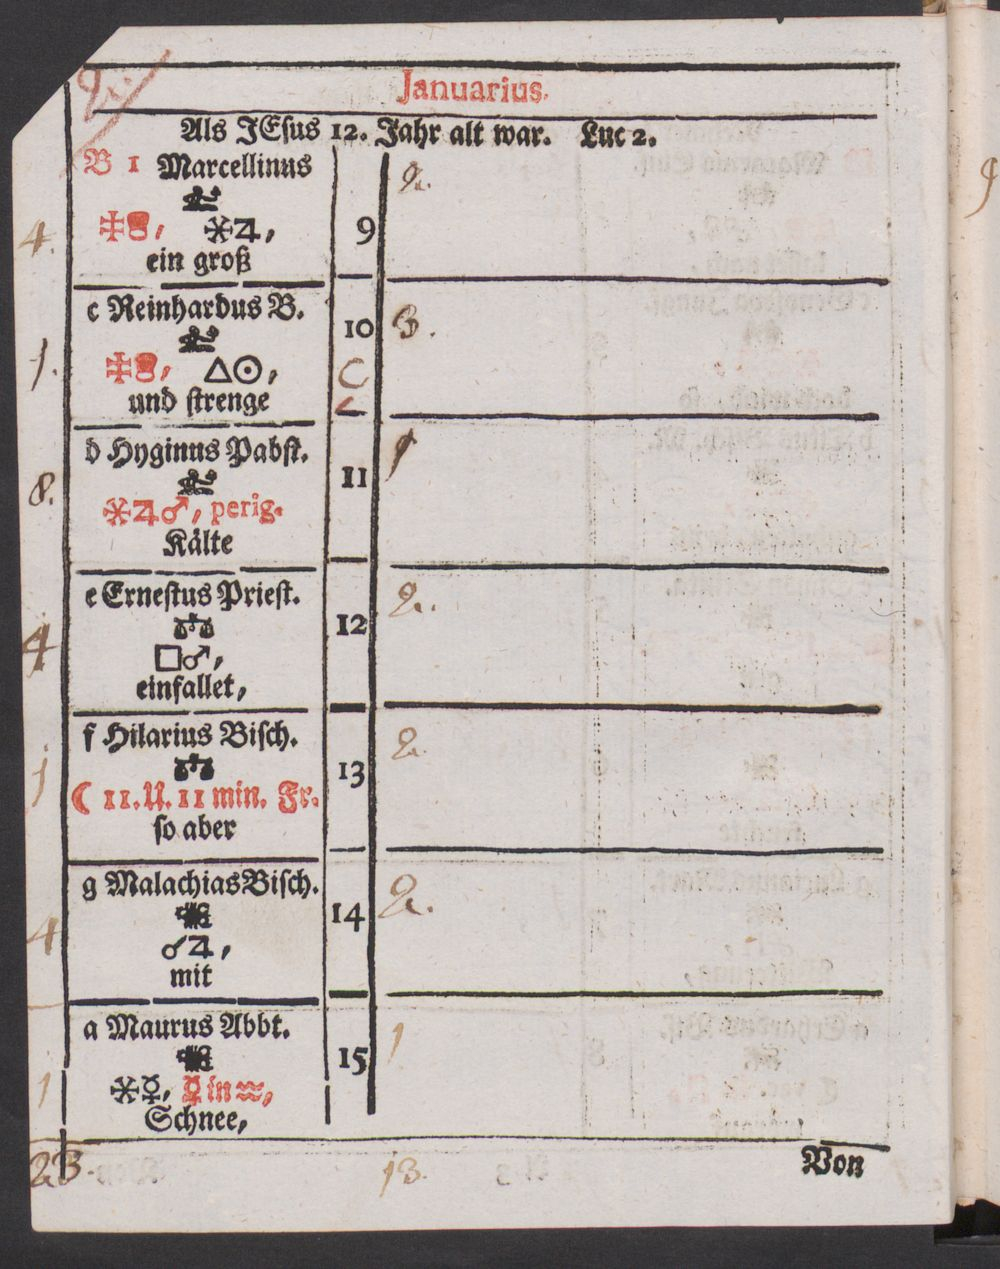 2.
Januarius.
Als JEsus 12. Jahr alt war. Luc 2.
B 1 Marcellinus
4. ✠, ⚹♃, 9 2.
ein groß
c Reinhardus B.
10 3.
1. ✠, △☉,
und strenge
d Hyginus Pabst.
8. 11 1
⚹♃♂, perig.
Kälte
e Ernestus Priest.
12 2.
4 □♂,
einfallet,
f Hilarius Bisch.
1 13 2.
☾ 11. U. 11 min. Fr.
so aber
g Malachias Bisch.
14 2.
4 ☌♃,
mit
a Maurus Abbt.
15 1
1 ⚹☿, ☿ in ♒,
Schnee,
23. 13. Von